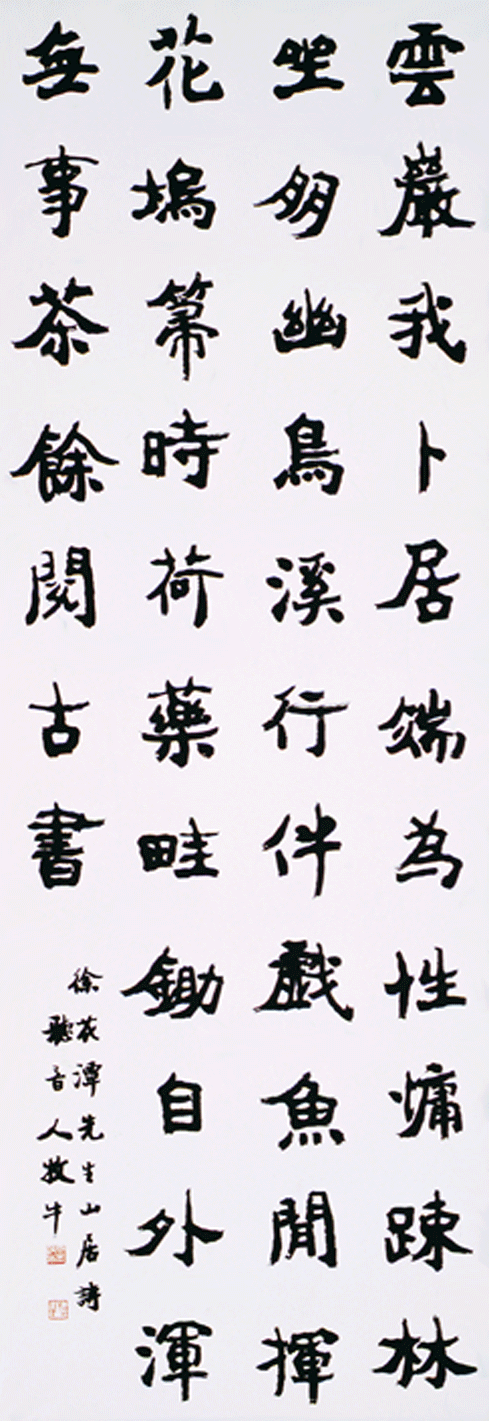 雲巖我卜居端為性慵踈林
坐朋幽鳥溪行伴戲魚閒揮
花塢箒時荷藥畦鋤自外渾
無事茶餘閱古書
徐花潭先生山居詩
聽音人牧牛